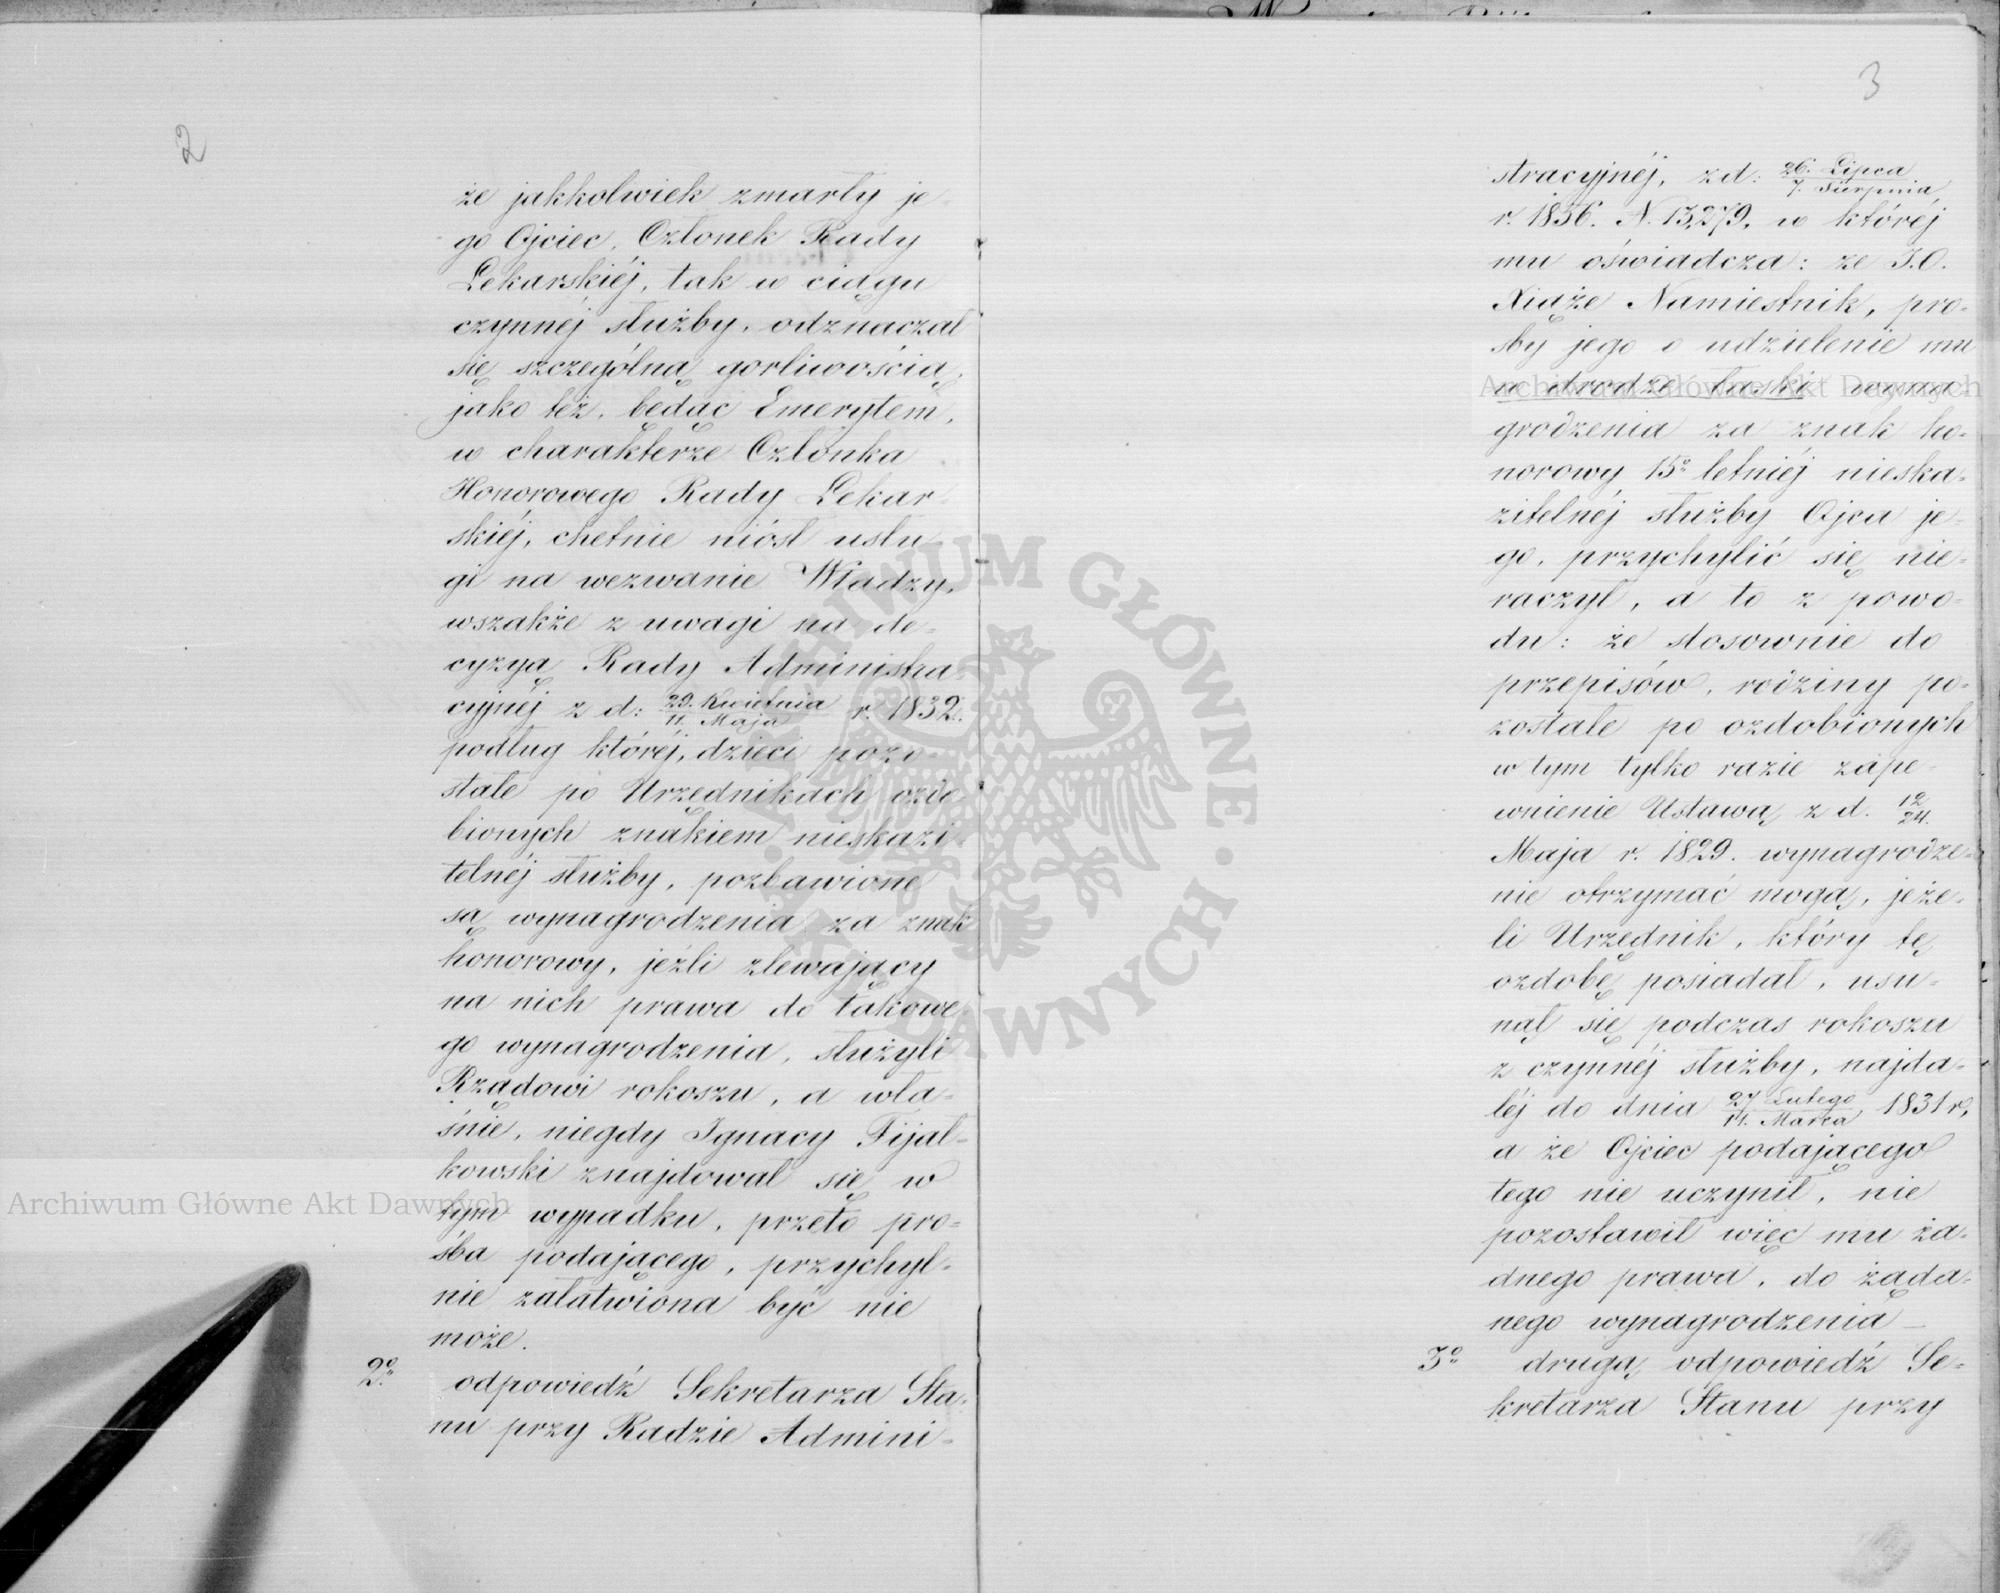 2
że jakkolwiek zmarły je-
go Ojciec, Członek Rady
Lekarskiéj, tak w ciągu
czynnéj służby, odznaczał
się szczególną gorliwością,
jako też, będąc Emerytem,
w charakterze Członka
Honorowego Rady Lekar-
skiéj, chętnie niósł usłu-
gi na wezwanie Władzy,
wszakże z uwagi na de-
cyzyą Rady Administra-
cyjnéj z d: 29. Kwietnia / 11. Maja r. 1832.
podług któréj, dzieci pozo-
stałe po Urzędnikach ozdo-
bionych znakiem nieskazi-
telnéj służby, pozbawione
są wynagrodzenia za znak
honorowy, jeźli zlewający
na nich prawa do takowe-
go wynagrodzenia, służyli
Rządowi rokoszu, a wła-
śnie, niegdy Ignacy Fijał-
kowski znajdował się w
tym wypadku, przeto pro-
śba podającego, przychyl-
nie załatwiona być nie
może.
2º odpowiedź Sekretarza Sta-
nu przy Radzie Admini-
3
stracyjnéj, z d: 26. Lipca / 7. Sierpnia
r. 1856. N. 13,279, w któréj
mu oświadcza: że J.O.
Xiąże Namiestnik, pro-
śby jego o udzielenie mu
w drodze łaski wyna-
grodzenia za znak ho-
norowy 15º letniéj nieska-
zitelnéj służby Ojca je-
go, przychylić się nie-
raczył, a to z powo-
du: że stosownie do
przepisów, rodziny po-
zostałe po ozdobionych
w tym tylko razie zape-
wnienie Ustawą z d. 12/24.
Maja r. 1829. wynagrodze-
nie otrzymać mogą, jeże-
li Urzędnik, który tę
ozdobę posiadał, usu-
nął się podczas rokoszu
z czynnéj służby, najda-
léj do dnia 27 Lutego / 11. Marca 1831 r,
a że Ojciec podającego
tego nie uczynił, nie
pozostawił więc mu ża-
dnego prawa, do żąda-
nego wynagrodzenia —
3º drugą, odpowiedź Se-
kretarza Stanu przy
Archiwum Główne Akt Dawnych
Archiwum Główne Akt Dawnych
ARCHIWUM GŁÓWNE • AKT DAWNYCH •